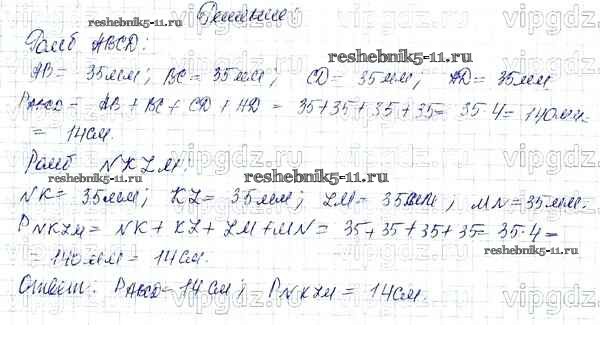 Решение:
Ромб ABCD:
AB = 35мм; BC = 35мм; CD = 35мм; AD = 35мм
PABCD = AB + BC + CD + AD = 35+35+35+35 = 35·4 = 140мм =
= 14см.
Ромб NKLM:
NK = 35мм; KL = 35мм; LM = 35мм; MN = 35мм.
PNKLM = NK + KL + LM + MN = 35+35+35+35 = 35·4 =
= 140мм = 14см.
Ответ: PABCD = 14см; PNKLM = 14см.
vipgdz.ru
reshebnik5-11.ru
reshebnik5-11.ru
reshebnik5-11.ru
reshebnik5-11.ru